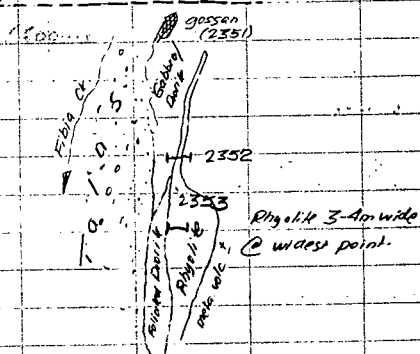 gossan
(2351)
Fibia Ck
Gabbro/
Diorite
2352
2353
Rhyolite 3-4m wide
@ widest point.
Foliated Diorite
Rhyolite
meta volc